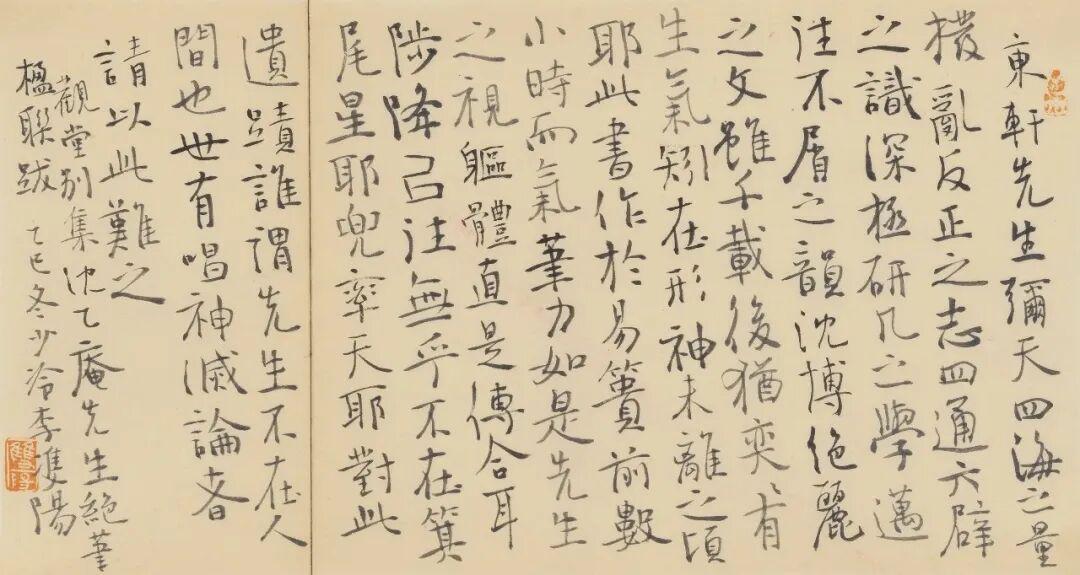 東軒先生彌天四海之量
撥亂反正之志四通六辟
之識深極研几之學邁
往不屑之韻沈博絕麗
之文雖千載後猶奕〻有
生氣矧在形神未離之頃
耶此書作於易簀前數
小時而氣筆力如是先生
之視軀體直是傅合耳
陟降已往無乎不在箕
尾星耶兜率天耶對此
遺蹟誰謂先生不在人
間也世有唱神滅論者
請以此難之
觀堂別集沈乙庵先生絕筆
楹聯跋 乙巳冬少泠李雙陽